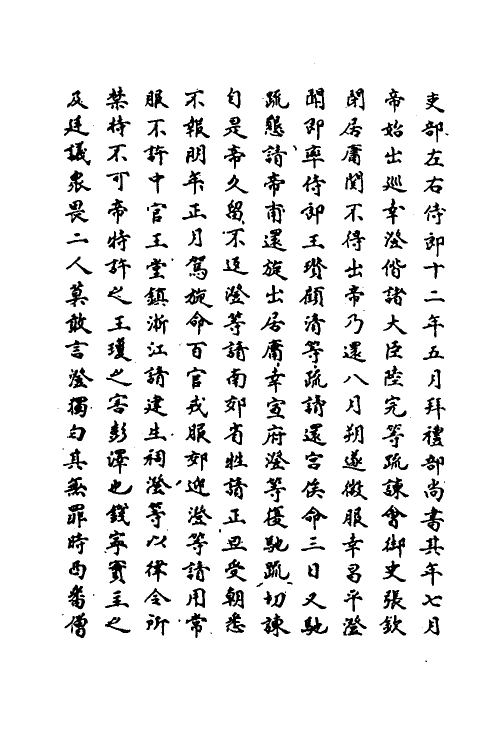 吏部左右侍郎十二年五月拜禮部尚書其年七月
帝始出巡幸澄偕諸大臣陸完等疏諫會御史張欽
閉居庸関不得出帝乃還八月朔遂微服幸昌平澄
聞即率侍郎王瓚顧清等疏請還宮俟命三日又馳
疏懇請帝甫還旋出居庸幸宣府澄等復馳疏切諫
自是帝久留不返澄等請南郊省牲請正旦受朝悉
不報明年正月駕旋命百官戎服郊迎澄等請用常
服不許中官王堂鎮浙江請建生祠澄等以律令所
禁持不可帝特許之王瓊之害彭澤也錢寧實主之
及廷議衆畏二人莫敢言澄獨白其無罪時西畨僧